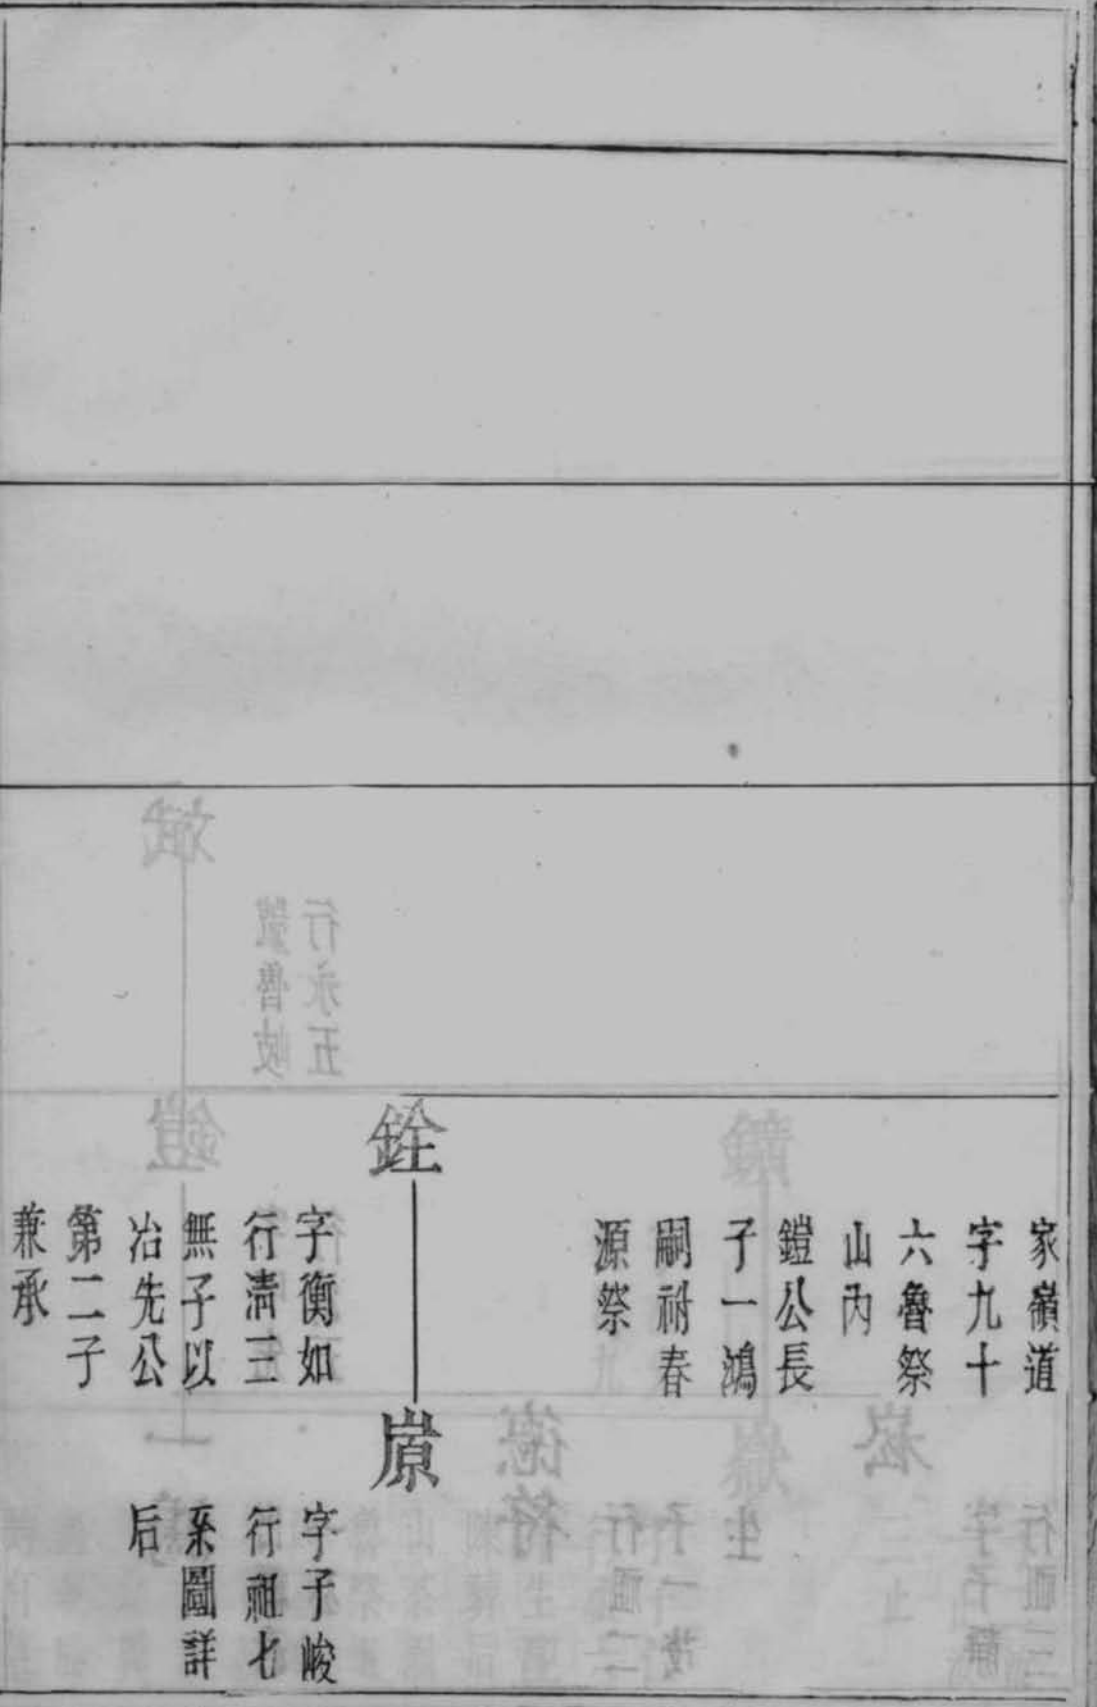 家嶺道
字九十
六魯祭
山內
鎧公長
子一鴻
嗣祔春
源祭
銓
字衡如
行淸三
無子以
冶先公
第二子
兼承
㟲
字子峻
行祖七
系圖詳
后